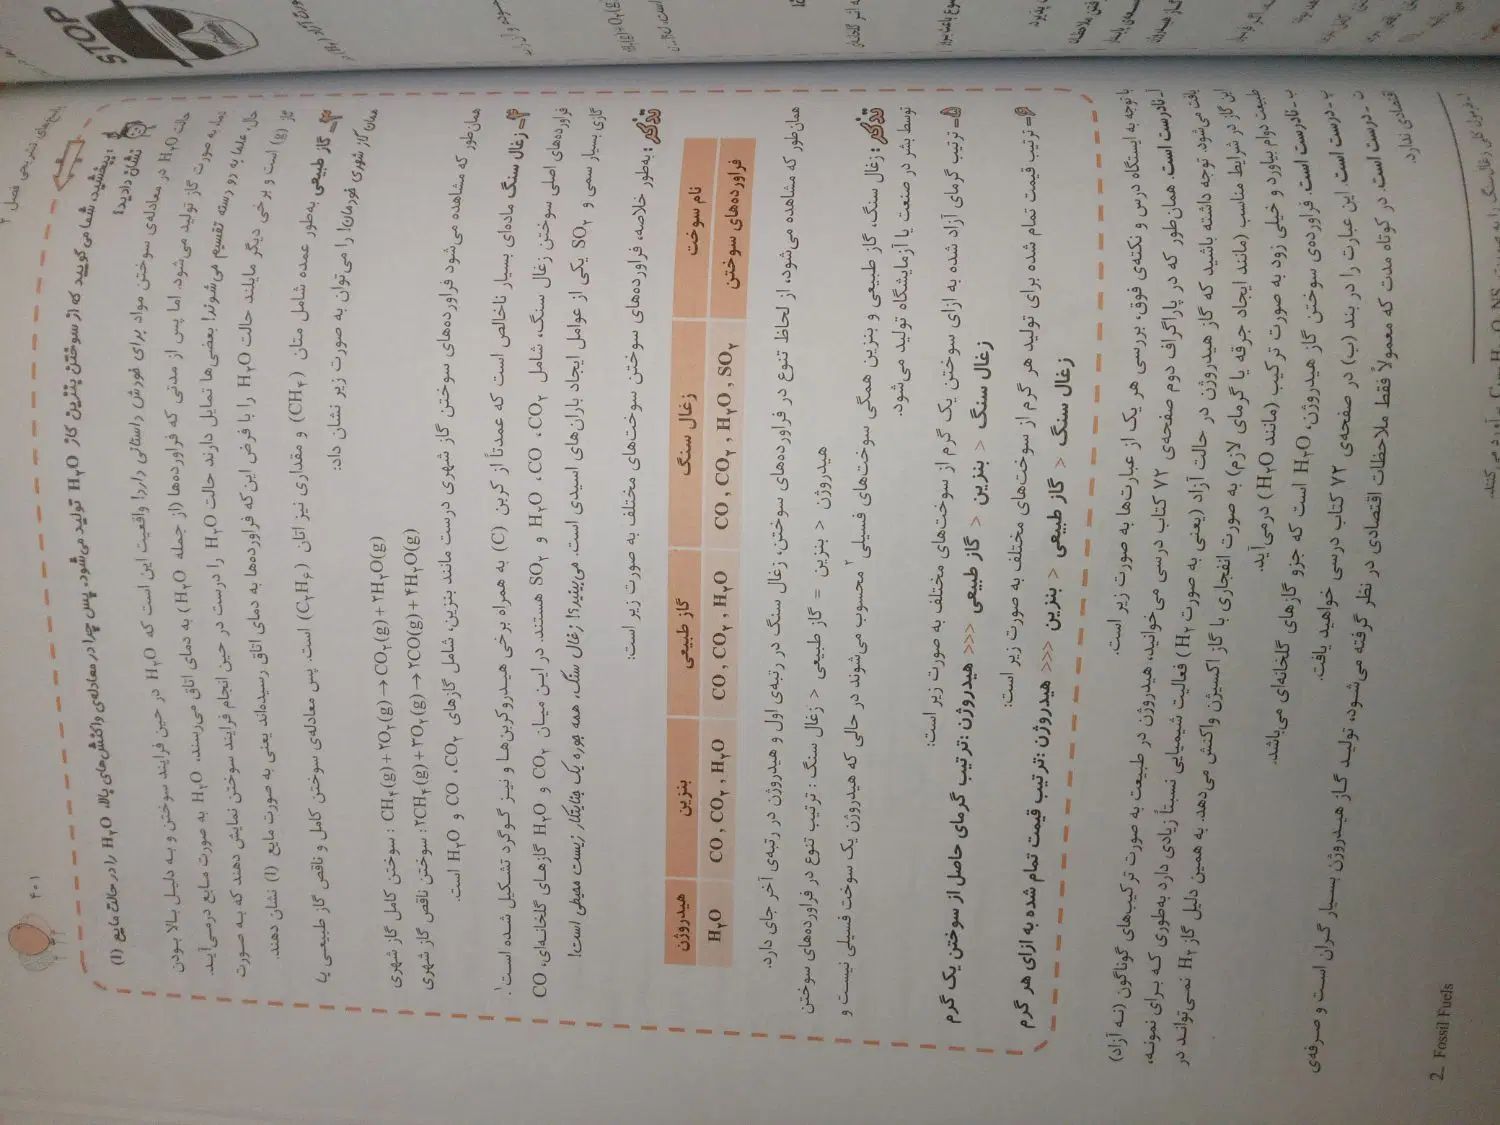 ۴۰۱
پاسخ‌های تشریحی فصل ۲
ببخشید، شما می‌گویید که از سوختن بنزین گاز H₂O تولید می‌شود. پس چرا در معادله‌ی واکنش‌های بالا، H₂O را در حالت مایع (l)
نشان دادید؟
حالت H₂O در معادله‌ی سوختن مواد برای خودش داستانی دارد! واقعیت این است که H₂O در حین فرایند سوختن و به دلیل بالا بودن
دما، به صورت گاز تولید می‌شود. اما پس از مدتی که فراورده‌ها (از جمله H₂O) به دمای اتاق می‌رسند، H₂O به صورت مایع درمی‌آید.
حال، علما به دو دسته تقسیم می‌شوند! بعضی‌ها تمایل دارند حالت H₂O را درست در حین انجام فرایند سوختن نمایش دهند که به صورت
گاز (g) است و برخی دیگر مایلند حالت H₂O را با فرض این‌که فراورده‌ها به دمای اتاق رسیده‌اند یعنی به صورت مایع (l) نشان دهند.
۳- گاز طبیعی به‌طور عمده شامل متان (CH₄) و مقداری نیز اتان (C₂H₆) است. پس معادله‌ی سوختن کامل و ناقص گاز طبیعی یا
همان گاز شهری خودمان! را می‌توان به صورت زیر نشان داد:
سوختن کامل گاز شهری : CH₄(g) + ۲O₂(g) → CO₂(g) + ۲H₂O(g)
سوختن ناقص گاز شهری : ۲CH₄(g) + ۳O₂(g) → ۲CO(g) + ۴H₂O(g)
همان‌طور که مشاهده می‌شود فراورده‌های سوختن گاز شهری درست مانند بنزین، شامل گازهای CO₂، CO و H₂O است.
۴- زغال سنگ ماده‌ای بسیار ناخالص است که عمدتاً از کربن (C) به همراه برخی هیدروکربن‌ها و نیز گوگرد تشکیل شده است¹.
فراورده‌های اصلی سوختن زغال سنگ، شامل CO₂، CO، H₂O و SO₂ هستند. در این میان CO₂ و H₂O گازهای گلخانه‌ای، CO
گازی بسیار سمی و SO₂ یکی از عوامل ایجاد باران‌های اسیدی است. می‌بینید؟! زغال سنگ، همه جوره یک جنایتکار زیست محیطی است!
تذکر: به‌طور خلاصه، فراورده‌های سوختن سوخت‌های مختلف به صورت زیر است:
نام سوخت زغال سنگ گاز طبیعی بنزین هیدروژن
فراورده‌های سوختن CO , CO₂ , H₂O , SO₂ CO , CO₂ , H₂O CO , CO₂ , H₂O H₂O
همان‌طور که مشاهده می‌شود، از لحاظ تنوع در فراورده‌های سوختن، زغال سنگ در رتبه‌ی اول و هیدروژن در رتبه‌ی آخر جای دارد.
هیدروژن < بنزین = گاز طبیعی < زغال سنگ : ترتیب تنوع در فراورده‌های سوختن
تذکر: زغال سنگ، گاز طبیعی و بنزین همگی سوخت‌های فسیلی² محسوب می‌شوند در حالی که هیدروژن یک سوخت فسیلی نیست و
توسط بشر در صنعت یا آزمایشگاه تولید می‌شود.
۵- ترتیب گرمای آزاد شده به ازای سوختن یک گرم از سوخت‌های مختلف به صورت زیر است:
زغال سنگ > بنزین > گاز طبیعی >>> هیدروژن : ترتیب گرمای حاصل از سوختن یک گرم
۶- ترتیب قیمت تمام شده برای تولید هر گرم از سوخت‌های مختلف به صورت زیر است:
زغال سنگ > گاز طبیعی > بنزین >>>> هیدروژن : ترتیب قیمت تمام شده به ازای هر گرم
با توجه به ایستگاه درس و نکته‌ی فوق، بررسی هر یک از عبارت‌ها به صورت زیر است.
آ - نادرست است. همان‌طور که در پاراگراف دوم صفحه‌ی ۷۲ کتاب درسی می‌خوانید، هیدروژن در طبیعت به صورت ترکیب‌های گوناگون (نه آزاد)
یافت می‌شود. توجه داشته باشید که گاز هیدروژن در حالت آزاد (یعنی به صورت H₂) فعالیت شیمیایی نسبتاً زیادی دارد به‌طوری که برای نمونه،
این گاز در شرایط مناسب (مانند ایجاد جرقه یا گرمای لازم) به صورت انفجاری با گاز اکسیژن واکنش می‌دهد. به همین دلیل گاز H₂ نمی‌تواند در
طبیعت دوام بیاورد و خیلی زود به صورت ترکیب (مانند H₂O) درمی‌آید.
ب - نادرست است. فراورده‌ی سوختن گاز هیدروژن، H₂O است که جزو گازهای گلخانه‌ای می‌باشد.
پ - درست است. این عبارت را در بند (ب) در صفحه‌ی ۷۲ کتاب درسی خواهید یافت.
ت - درست است. در کوتاه مدت که معمولاً فقط ملاحظات اقتصادی در نظر گرفته می‌شود، تولید گاز هیدروژن بسیار گران است و صرفه‌ی
اقتصادی ندارد.
2. Fossil Fuels
STOP